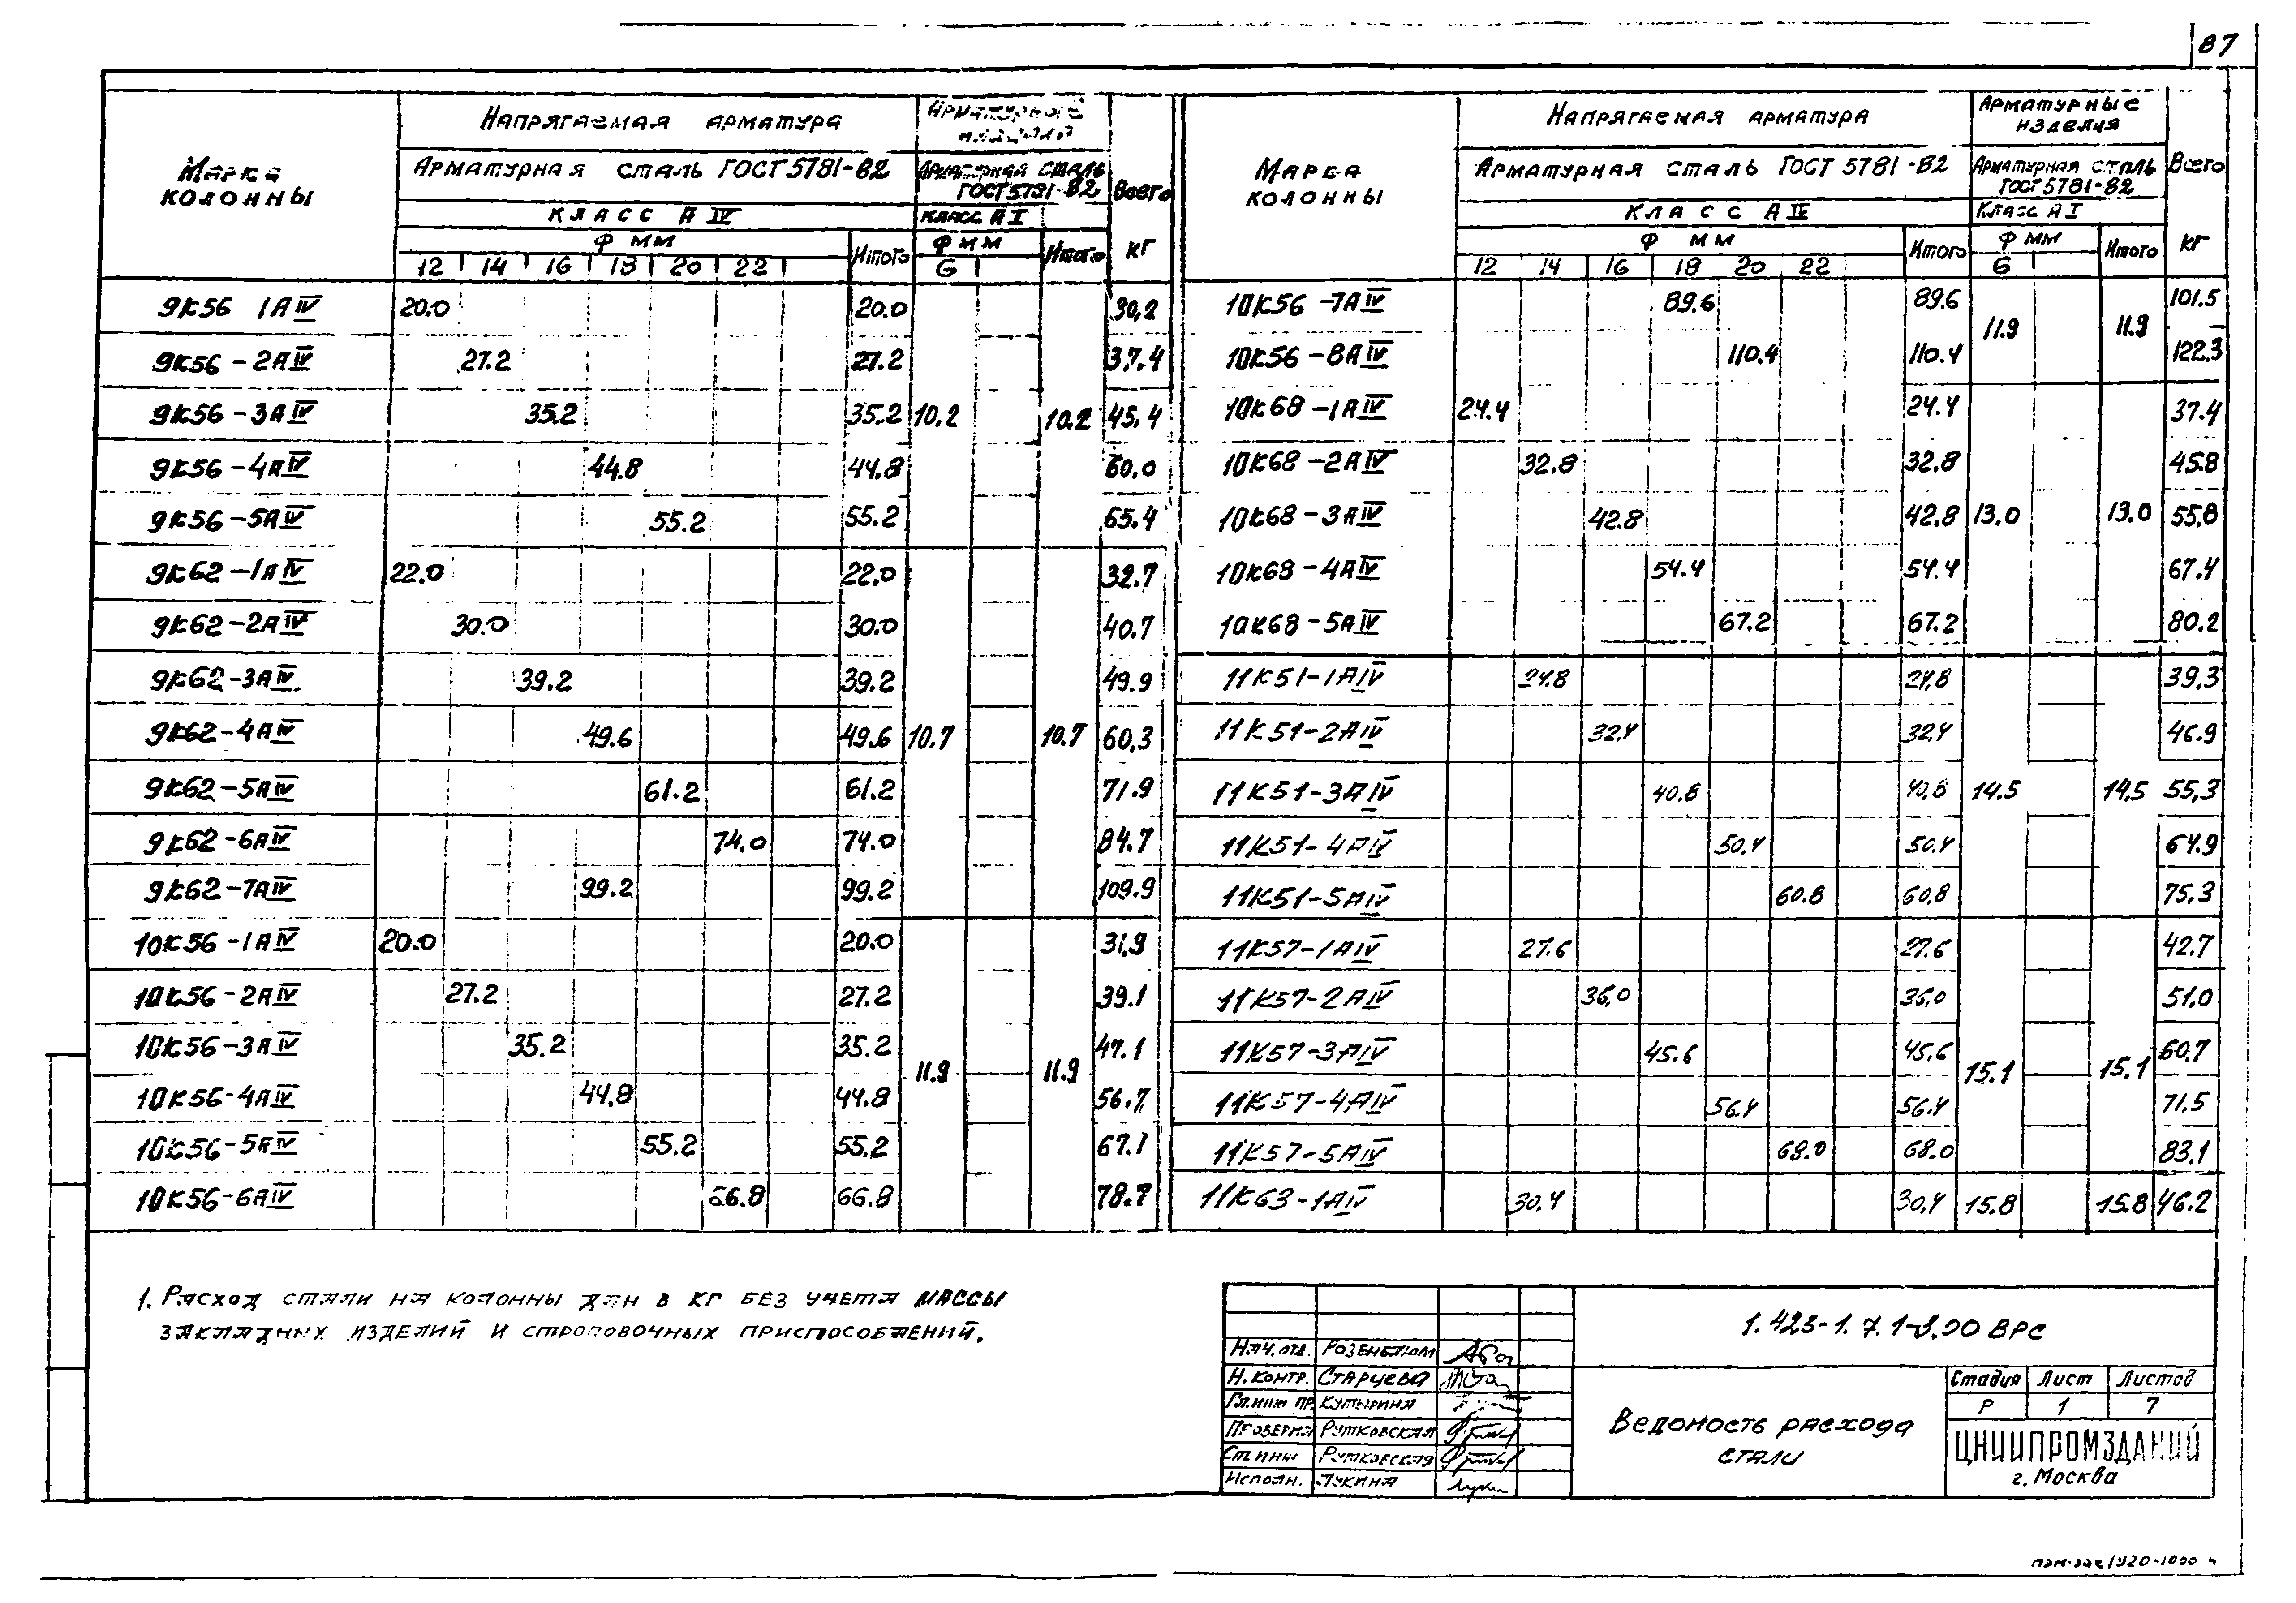 87
Марка колонны | Напрягаемая арматура | Арматурные изделия | Всего кг
Арматурная сталь ГОСТ 5781-82 | Арматурная сталь ГОСТ 5781-82
Класс А IV | Класс А I
Ф мм | Итого | Ф мм | Итого
12 14 16 18 20 22 | 6
9К56 1АIV 20.0 20.0 30,2
9К56-2АIV 27.2 27.2 37.4
9К56-3АIV 35.2 35.2 10.2 10.2 45.4
9К56-4АIV 44.8 44.8 60.0
9К56-5АIV 55.2 55.2 65.4
9К62-1АIV 22.0 22.0 32.7
9К62-2АIV 30.0 30.0 40.7
9К62-3АIV 39.2 39.2 49.9
9К62-4АIV 49.6 49.6 10.7 10.7 60,3
9К62-5АIV 61.2 61.2 71.9
9К62-6АIV 74.0 74.0 84.7
9К62-7АIV 99.2 99.2 109.9
10К56-1АIV 20.0 20.0 31,9
10К56-2АIV 27.2 27.2 39.1
10К56-3АIV 35.2 35.2 11.9 11.9 47.1
10К56-4АIV 44.8 44.8 56.7
10К56-5АIV 55.2 55.2 67.1
10К56-6АIV 66.8 66.8 78.7
Марка колонны | Напрягаемая арматура | Арматурные изделия | Всего кг
Арматурная сталь ГОСТ 5781-82 | Арматурная сталь ГОСТ 5781-82
Класс А IV | Класс А I
Ф мм | Итого | Ф мм | Итого
12 14 16 18 20 22 | 6
10К56-7АIV 89.6 89.6 11.9 11.9 101.5
10К56-8АIV 110.4 110.4 122.3
10К68-1АIV 24.4 24.4 37.4
10К68-2АIV 32.8 32.8 45.8
10К68-3АIV 42.8 42.8 13.0 13.0 55.8
10К68-4АIV 54.4 54.4 67.4
10К68-5АIV 67.2 67.2 80.2
11К51-1АIV 24.8 24,8 39,3
11К51-2АIV 32.4 32.4 46.9
11К51-3АIV 40.8 40,8 14.5 14.5 55,3
11К51-4АIV 50.4 50.4 64.9
11К51-5АIV 60.8 60,8 75.3
11К57-1АIV 27.6 27.6 42.7
11К57-2АIV 36,0 36,0 51.0
11К57-3АIV 45.6 45,6 15.1 15.1 60,7
11К57-4АIV 56.4 56.4 71.5
11К57-5АIV 68.0 68.0 83.1
11К63-1АIV 30.4 30,4 15.8 15.8 46.2
1. Расход стали на колонны дан в кг без учета массы
закладных изделий и строповочных приспособлений.
1.423-1.7.1-3.00 ВРС
Нач. отд. Розенблюм
Н. контр. Старцева
Гл. инж пр. Кутырина
Проверил Рутковская
Ст инж Рутковская
Исполн. Лукина
Ведомость расхода
стали
Стадия Лист Листов
Р 1 7
ЦНИИПРОМЗДАНИЙ
г. Москва